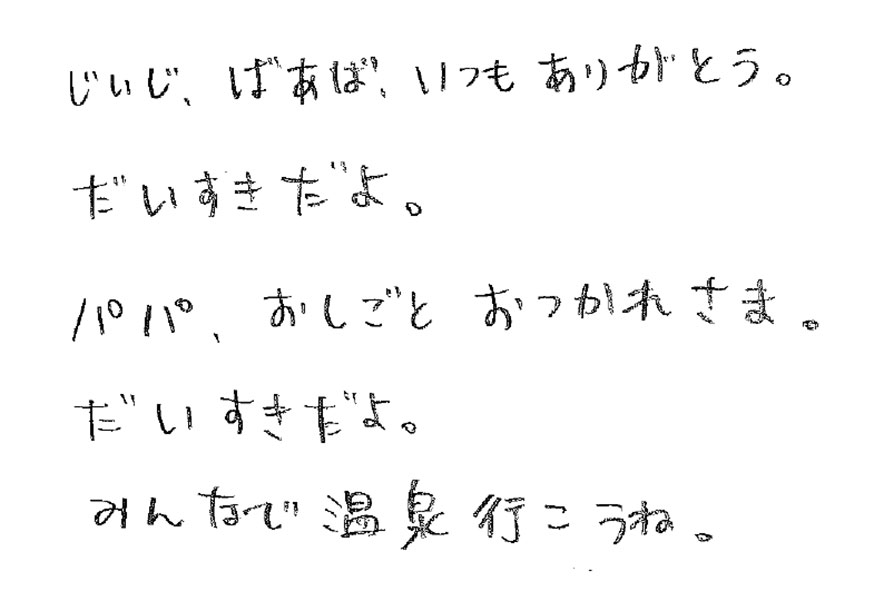 じぃじ、ばあば、いつもありがとう。
だいすきだよ。
パパ、おしごとおつかれさま。
だいすきだよ。
みんなで温泉行こうね。